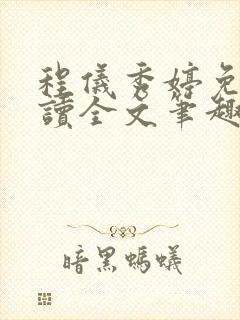 程儀秀婷免
讀全文筆趣
暗黑螞蟻